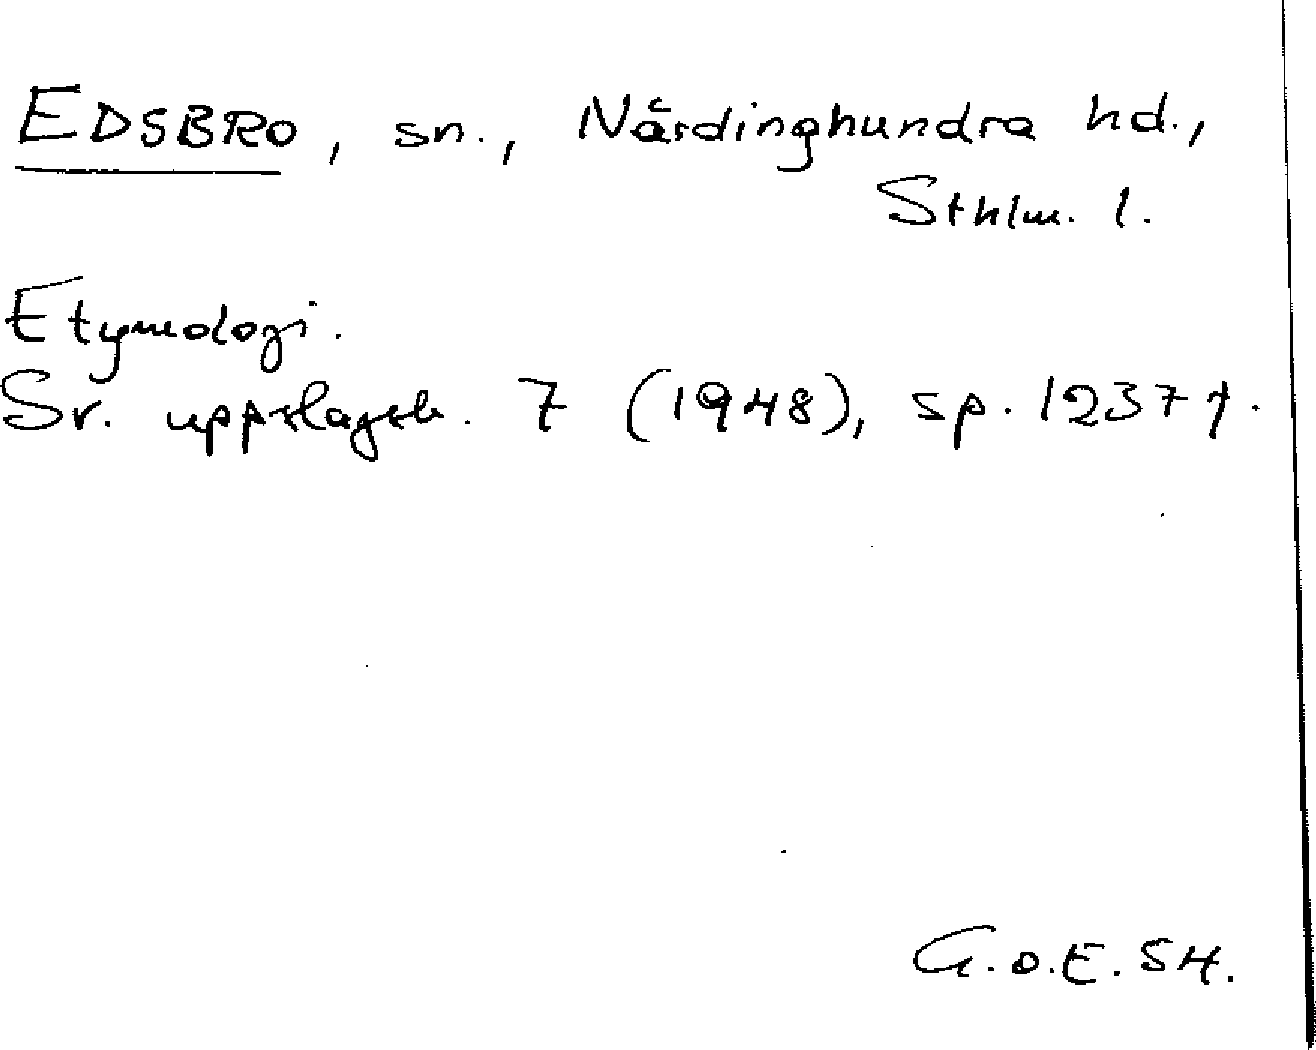 EDSBRO, sn., Närdinghundra hd.,
Sthlm. l.
Etymologi.
Sv. uppslagsb. 7 (1948), sp. 1237 f.
G.O.E. 54.